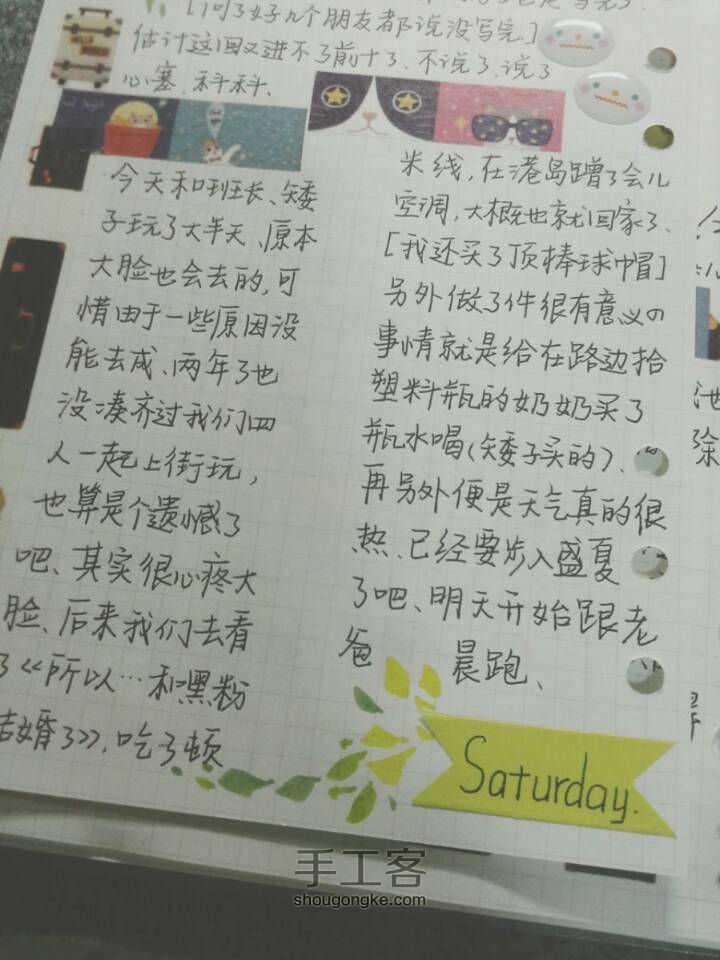 [问了好几个朋友都说没写完.]
估计这回又进不了前十了、不说了、说了
心塞、科科、
今天和班长、矮
子玩了大半天、原本
大脸也会去的,可
惜由于一些原因没
能去成、两年了也
没凑齐过我们四
人一起上街玩,
也算是个遗憾了
吧、其实很心疼大
脸、后来我们去看
了《所以…和黑粉
结婚了》,吃了顿
米线,在港岛蹭了会儿
空调,大概也就回家了、
[我还买了顶棒球帽]
另外做了件很有意义の
事情就是给在路边拾
塑料瓶的奶奶买了
瓶水喝(矮子买的)、
再另外便是天气真的很
热、已经要步入盛夏
了吧、明天开始跟老
爸 晨跑、
Saturday.
池
除
手工客
shougongke.com